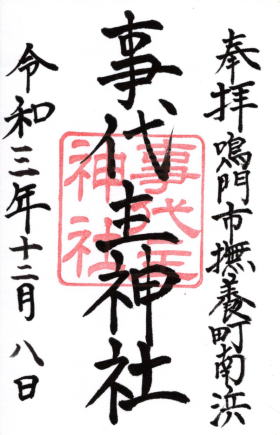 奉拝鳴門市撫養町南浜
事代主神社
事代主神社
令和三年十二月八日